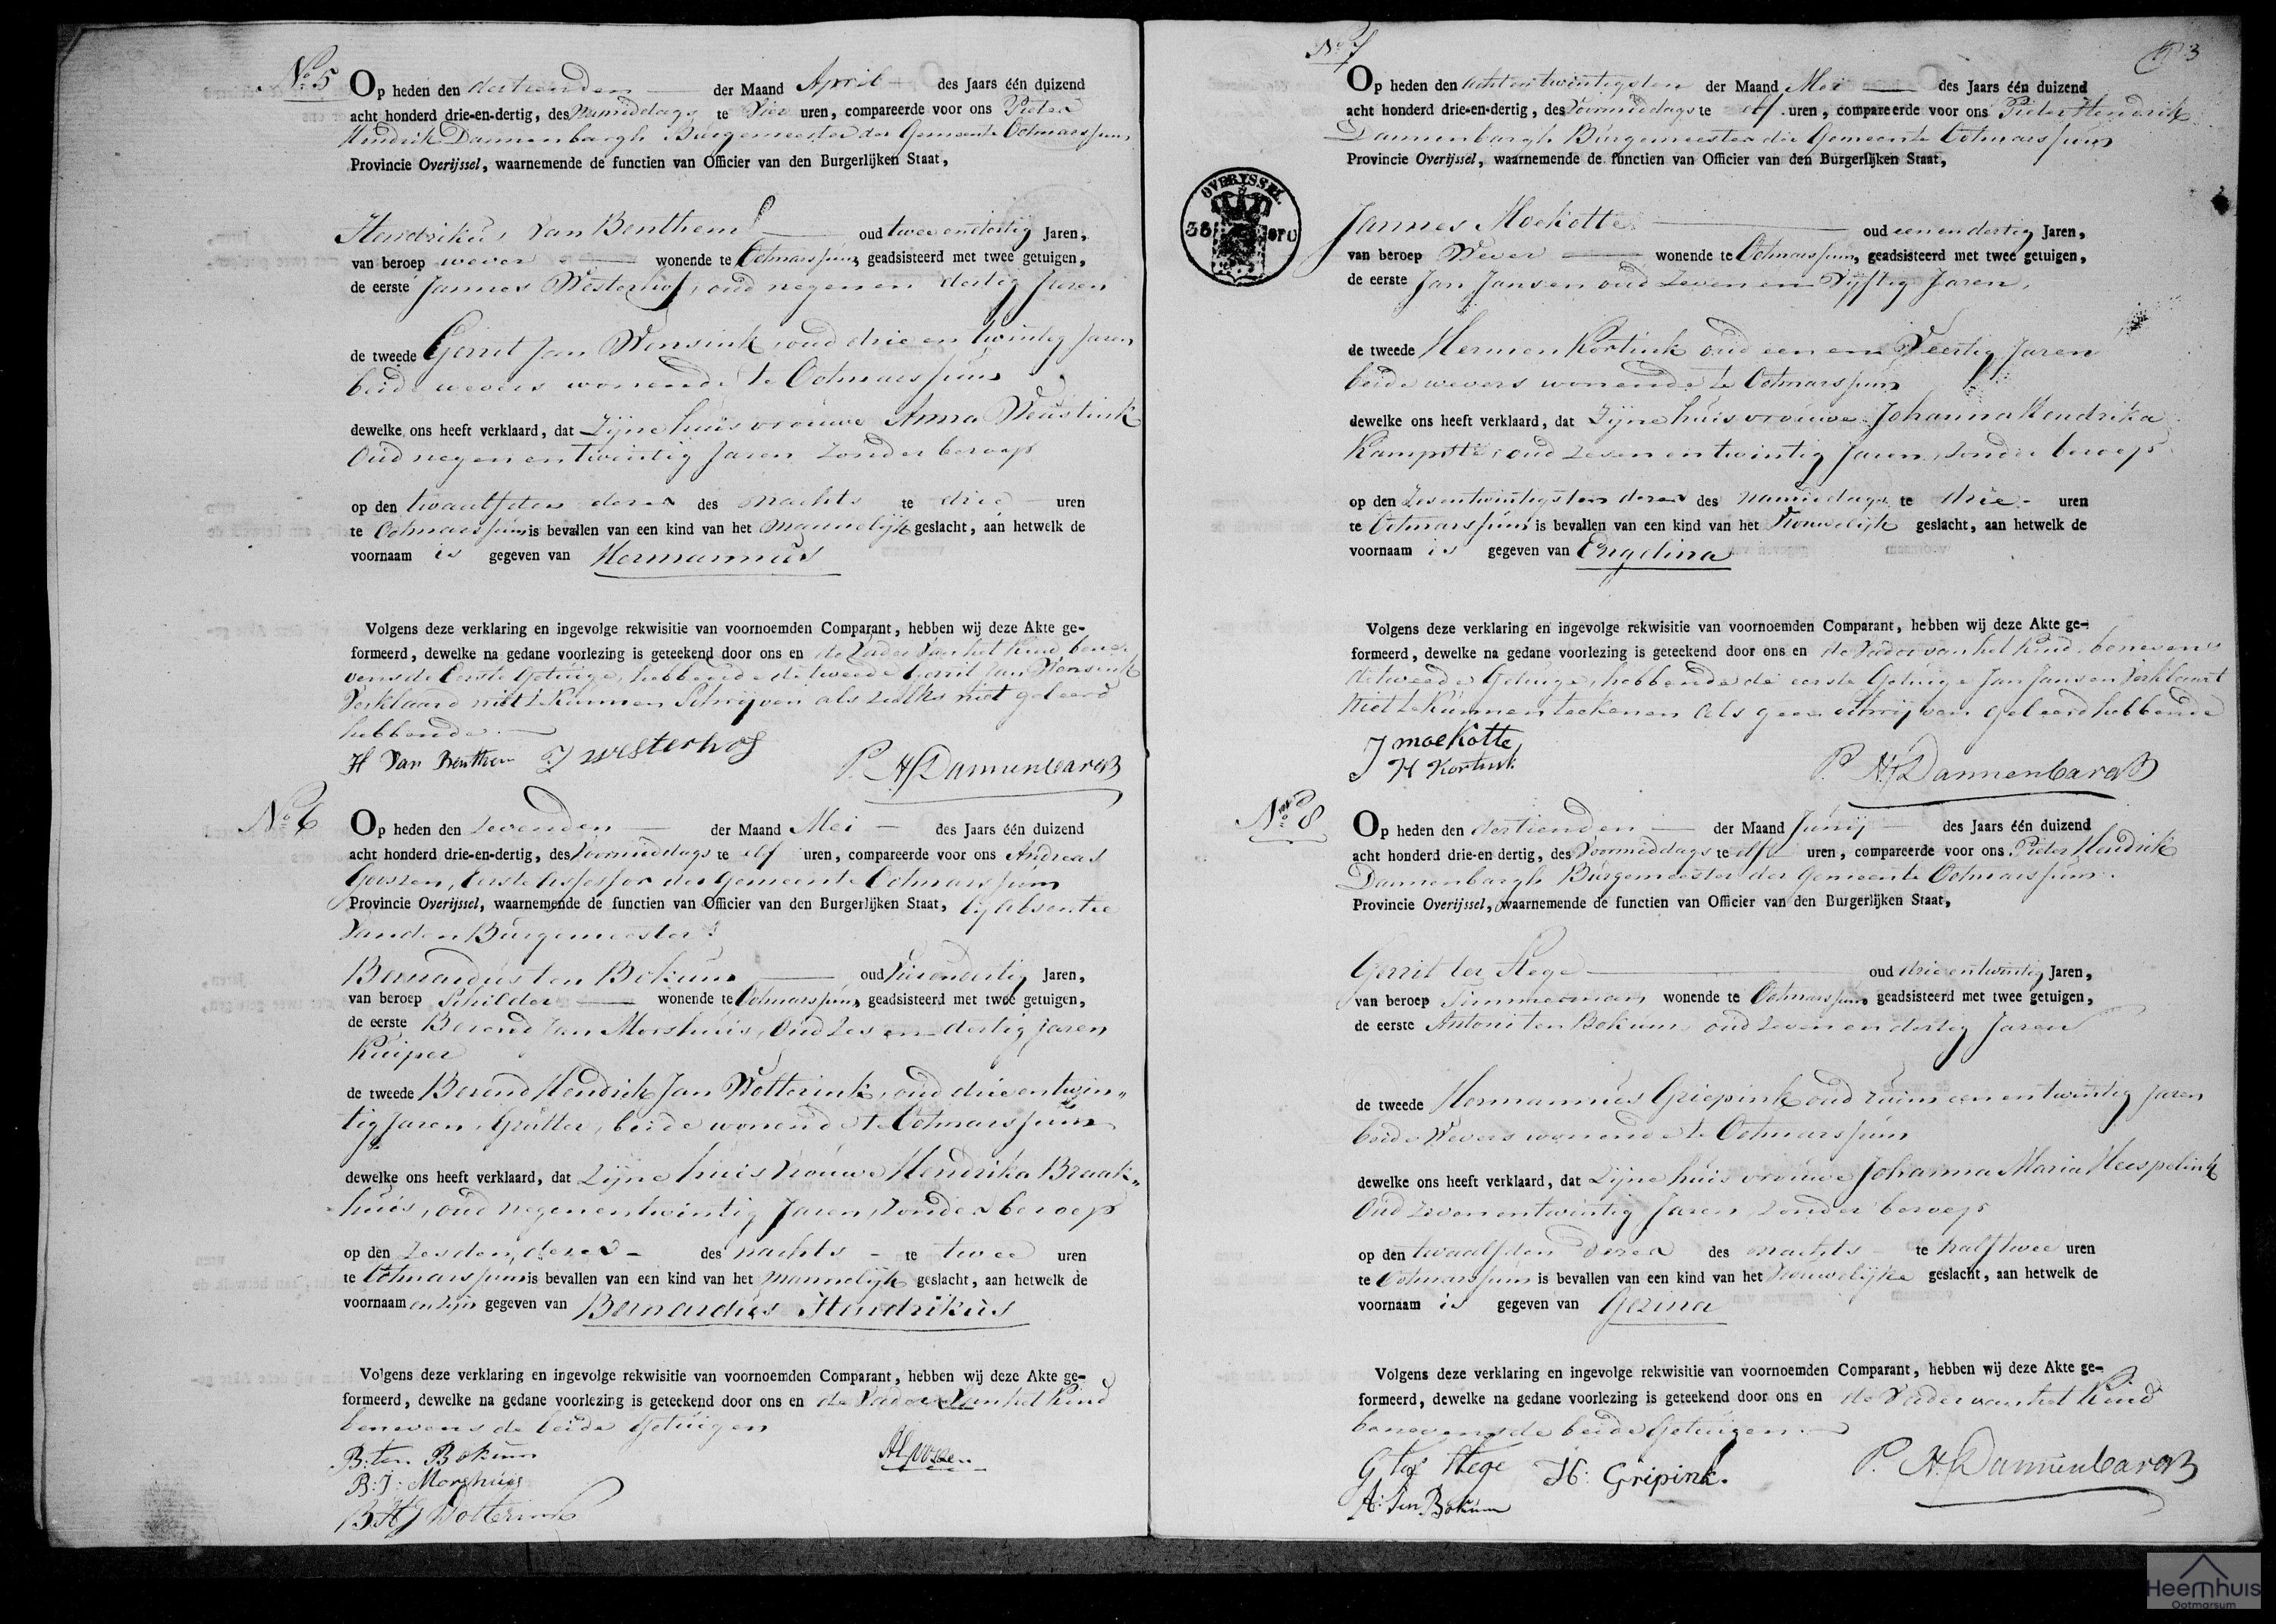 No 5
Op heden den dertienden der Maand April des Jaars één duizend
acht honderd drie-en-dertig, des Namiddags te Vier uren, compareerde voor ons Pieter
Hendrik Dannenbargh Burgemeester der Gemeente Ootmarssum
Provincie Overijssel, waarnemende de functien van Officier van den Burgerlijken Staat,
Hendrikus Van Benthem oud twee en dertig Jaren,
van beroep wever wonende te Ootmarssum, geadsisteerd met twee getuigen,
de eerste Jannes Westerhof, oud negen en dertig Jaren
de tweede Gerrit Jan Wensink, oud drie en twintig Jaren
beide wevers wonende te Ootmarssum
dewelke ons heeft verklaard, dat Zijne huisvrouwe Anna Weustink
Oud negen en twintig Jaren Zonder beroep
op den twaalfden dezer des nachts te drie uren
te Ootmarssum is bevallen van een kind van het mannelijk geslacht, aan hetwelk de
voornaam is gegeven van Hermannus
Volgens deze verklaring en ingevolge rekwisitie van voornoemden Comparant, hebben wij deze Akte ge-
formeerd, dewelke na gedane voorlezing is geteekend door ons en de Vader van het Kind bene-
vens de Eerste Getuige, hebbende de tweede Gerrit Jan Wensink
Verklaard niet te kunnen Schrijven als zulks niet geleerd
hebbende.
H Van Benthem J westerhof P. H. Dannenbargh
No 6
Op heden den Zevenden der Maand Mei des Jaars één duizend
acht honderd drie-en-dertig, des Voormiddags te elf uren, compareerde voor ons Andreas
Goszen, Eerste Assessor der Gemeente Ootmarssum
Provincie Overijssel, waarnemende de functien van Officier van den Burgerlijken Staat, bij Absentie
Van den Burgemeester
Bernardus ten Bokum oud Vier en dertig Jaren,
van beroep Schilder wonende te Ootmarssum, geadsisteerd met twee getuigen,
de eerste Berend Jan Morshuis, Oud Zes en dertig jaren
Kuiper
de tweede Berend Hendrik Jan Wolterink, oud drie en twin-
tig Jaren, Grutter, beide wonende te Ootmarssum
dewelke ons heeft verklaard, dat Zijne huisvrouwe Hendrika Braak-
huis, oud negen en twintig Jaren, Zonder beroep
op den Zesden dezer des nachts te twee uren
te Ootmarssum is bevallen van een kind van het mannelijk geslacht, aan hetwelk de
voornaamen zijn gegeven van Bernardus Hendrikus
Volgens deze verklaring en ingevolge rekwisitie van voornoemden Comparant, hebben wij deze Akte ge-
formeerd, dewelke na gedane voorlezing is geteekend door ons en de Vader Van het Kind
benevens de beide Getuigen
B: ten Bokum
B: J: Morshuis
B H J Wolterink
No 7
3
Op heden den achtentwintigsten der Maand Mei des Jaars één duizend
acht honderd drie-en-dertig, des Voormiddags te elf uren, compareerde voor ons Pieter Hendrik
Dannenbargh Burgemeester der Gemeente Ootmarssum
Provincie Overijssel, waarnemende de functien van Officier van den Burgerlijken Staat,
OVERYSSEL
Jannes Moekotte oud een en dertig Jaren,
van beroep Wever wonende te Ootmarssum, geadsisteerd met twee getuigen,
de eerste Jan Jansen oud Zeven en Vijftig Jaren,
de tweede Hermen Kortink oud een en Veertig Jaren
beide wevers wonende te Ootmarssum
dewelke ons heeft verklaard, dat Zijne huisvrouwe Johanna Hendrika
Kampste, oud Zeven en twintig Jaren, Zonder beroep
op den Zesentwintigsten dezer des namiddags te drie uren
te Ootmarssum is bevallen van een kind van het Vrouwelijk geslacht, aan hetwelk de
voornaam is gegeven van Engelina
Volgens deze verklaring en ingevolge rekwisitie van voornoemden Comparant, hebben wij deze Akte ge-
formeerd, dewelke na gedane voorlezing is geteekend door ons en de Vader van het Kind benevens
de tweede Getuige, hebbende de eerste Getuige Jan Jansen Verklaart
Niet te Kunnen teekenen Als geen Schrijven geleerd hebbende
J moekotte
H Kortink P. H. Dannenbargh
No 8
Op heden den dertienden der Maand Junij des Jaars één duizend
acht honderd drie-en dertig, des Voormiddags te elf uren, compareerde voor ons Pieter Hendrik
Dannenbargh Burgemeester der Gemeente Ootmarssum
Provincie Overijssel, waarnemende de functien van Officier van den Burgerlijken Staat,
Gerrit ter Stege oud drie en twintig Jaren,
van beroep Timmerman wonende te Ootmarssum, geadsisteerd met twee getuigen,
de eerste Antoni ten Bokum oud Zeven en dertig Jaren
de tweede Hermannus Griepink oud ruim een en twintig Jaren
beide Wevers wonende te Ootmarssum
dewelke ons heeft verklaard, dat Zijne huisvrouwe Johanna Maria Heespelink
Oud Zeven en twintig Jaren, Zonder beroep
op den twaalfden Dezer des nachts te half twee uren
te Ootmarssum is bevallen van een kind van het Vrouwelijke geslacht, aan hetwelk de
voornaam is gegeven van Gezina
Volgens deze verklaring en ingevolge rekwisitie van voornoemden Comparant, hebben wij deze Akte ge-
formeerd, dewelke na gedane voorlezing is geteekend door ons en de Vader van het Kind
benevens de beide Getuigen
G ter Stege H: Gripink. P. H. Dannenbargh
A: ten Bokum
Heemhuis
Ootmarsum